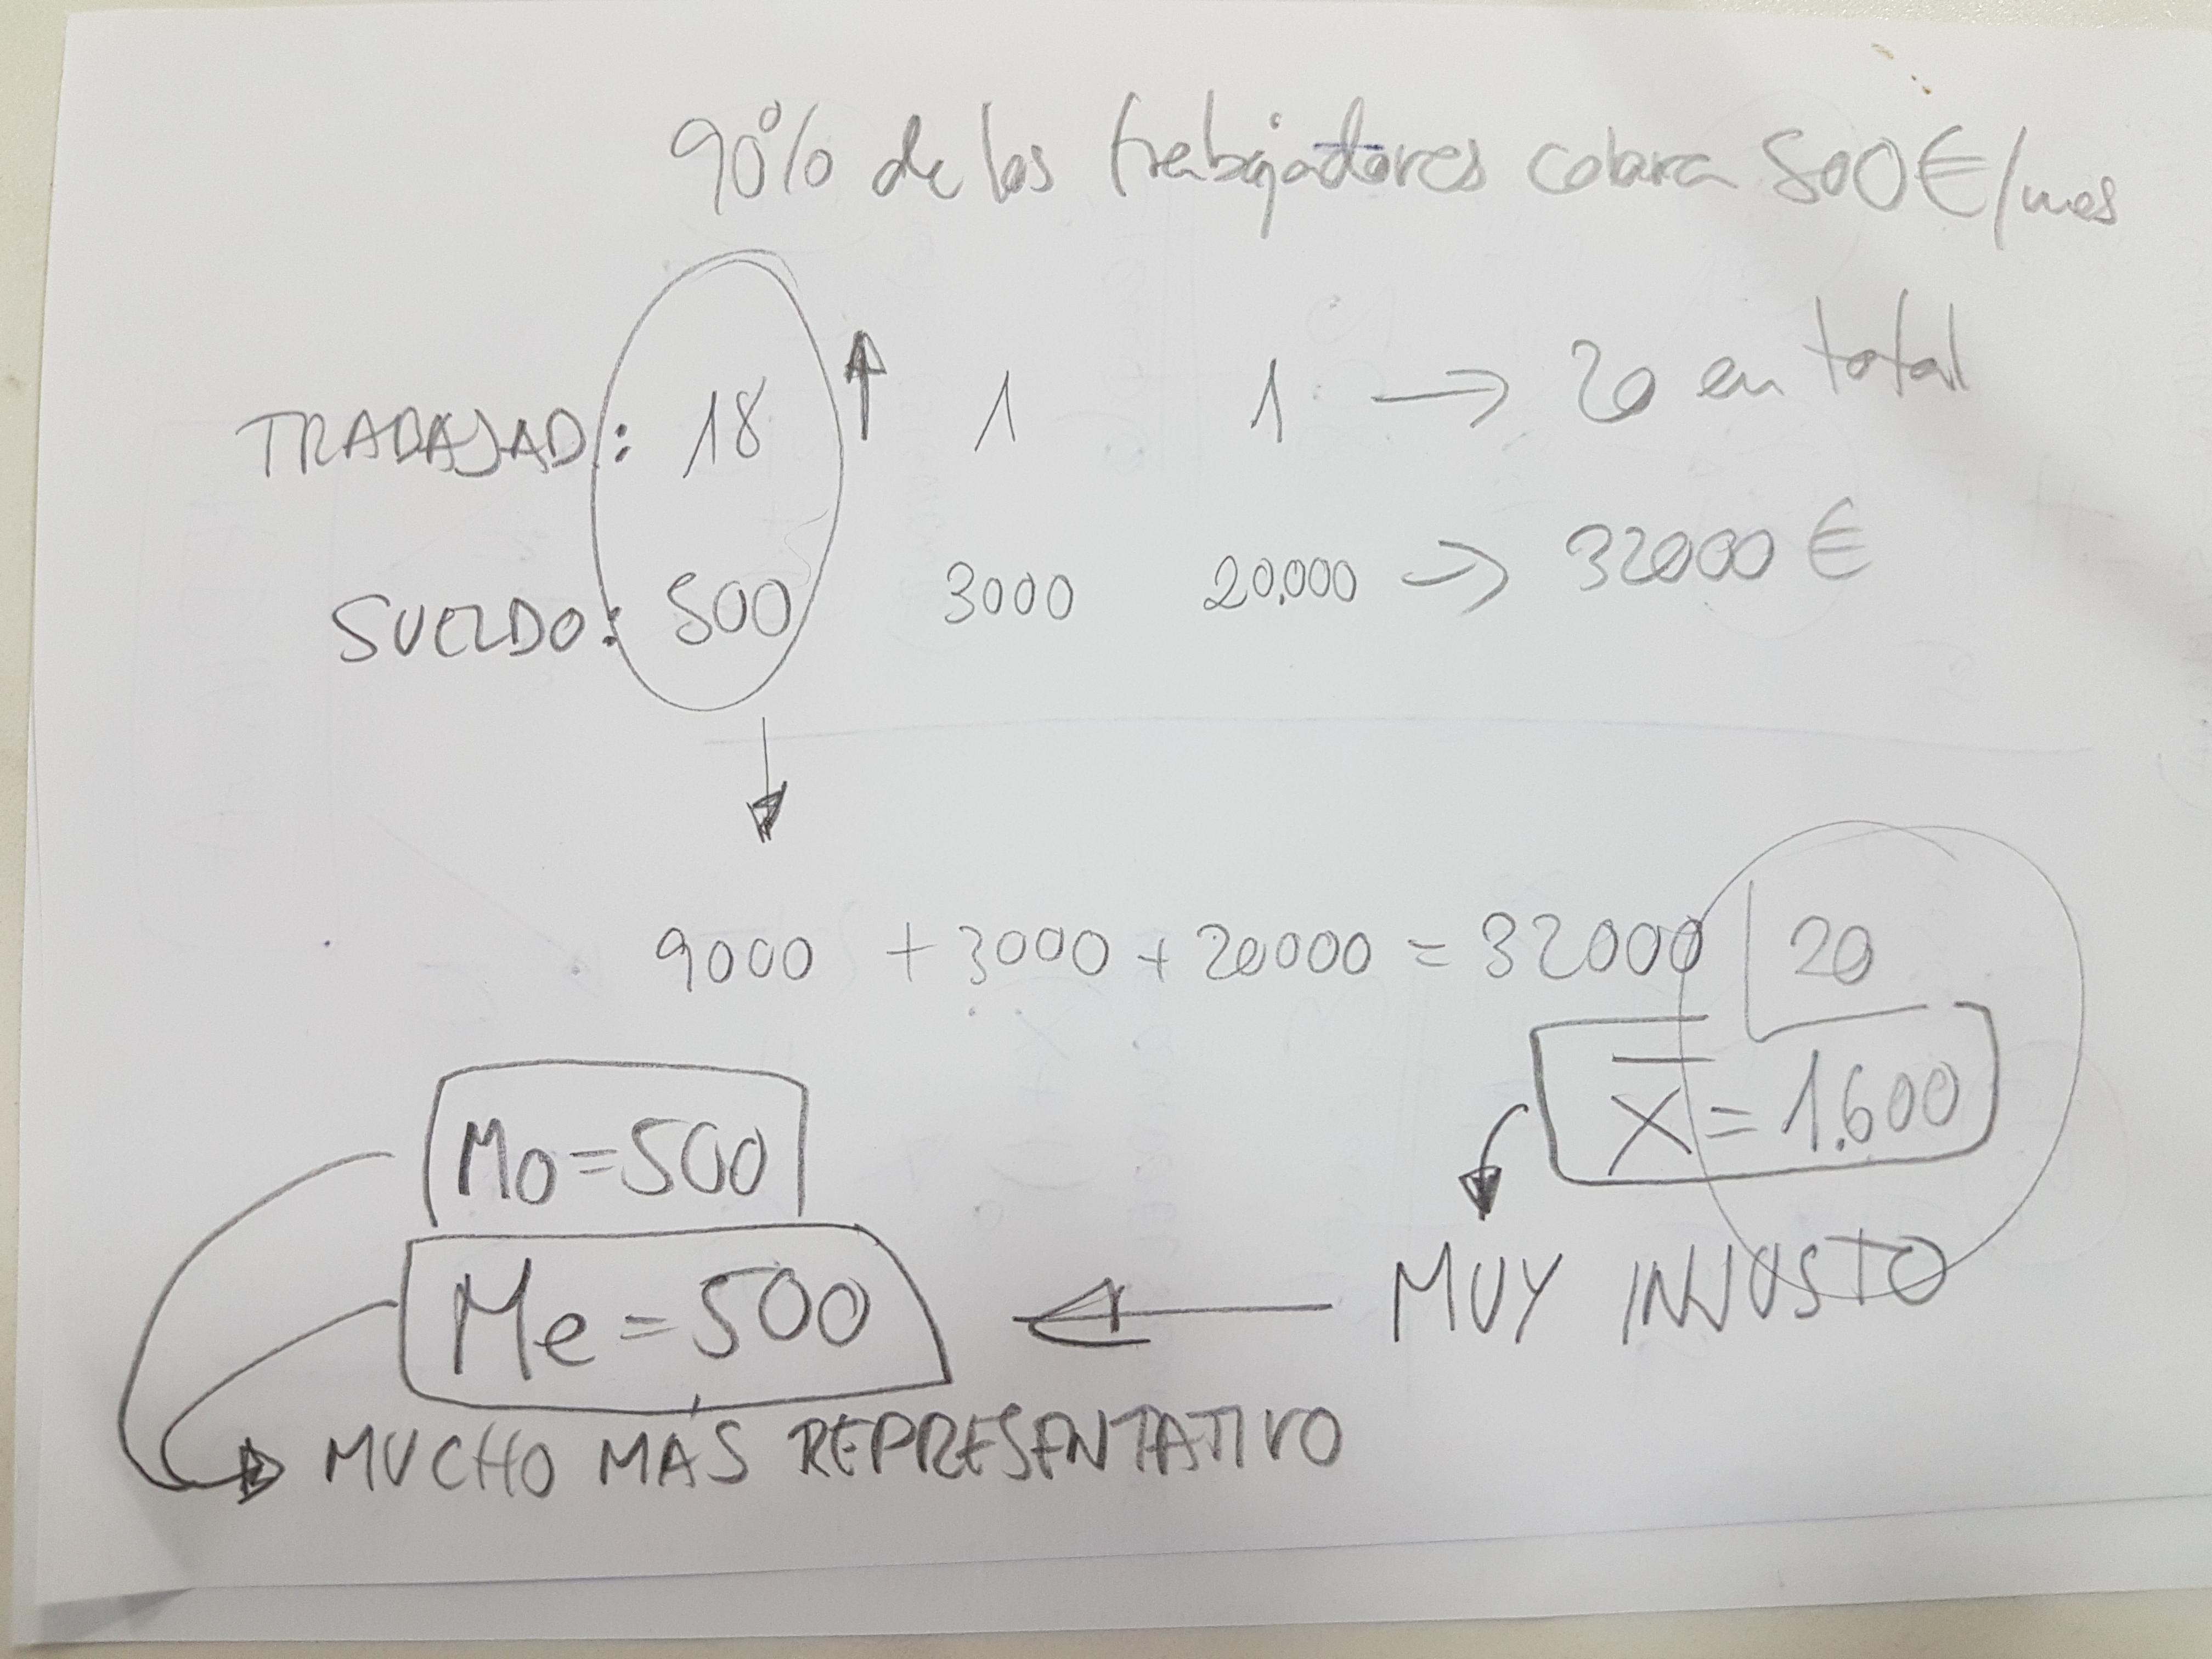 90% de los trabajadores cobra 500€/mes
TRABAJAD: 18 ↑ 1 1 → 20 en total
SUELDO: 500 3000 20.000 → 32000 €
9000 + 3000 + 20000 = 32000 | 20
X̄ = 1.600
Mo=500
Me=500 ← MUY INJUSTO
MUCHO MÁS REPRESENTATIVO